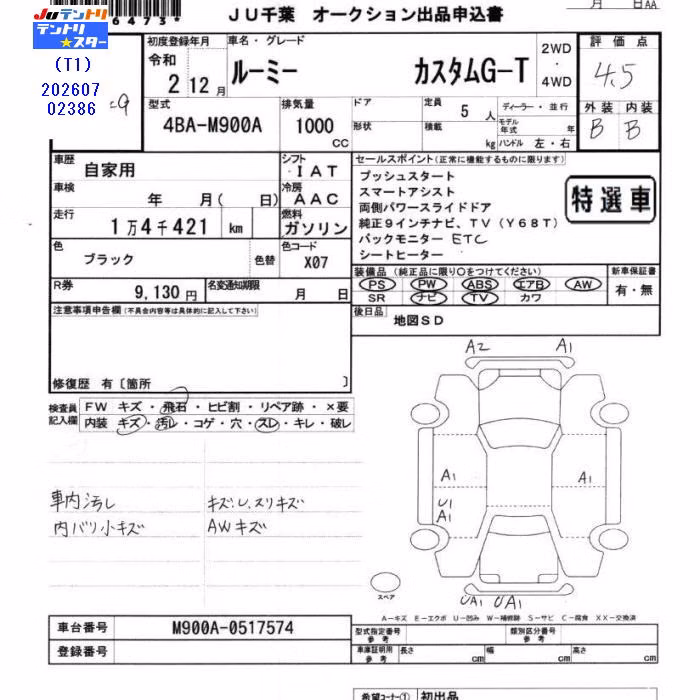 6473*
JU千葉 オークション出品申込書
月 日AA
Juテントリ
テントリ
★スター
(T1)
202607
02386
初度登録年月
令和
2 12月
車名・グレード
ルーミー カスタムG-T
2WD
・
4WD
評価点
4.5
外装 内装
B B
型式
4BA-M900A
排気量
1000
CC
ドア
形状
定員 5 人
積載 kg
ディーラー・並行
モデル年式 年
ハンドル 左・右
車歴 自家用
シフト IAT
車検 年 月( 日)
冷房 AAC
走行 1万4千421 km
燃料 ガソリン
色 ブラック 色替
色コード X07
R券 9,130円
名変通知期限 月 日
セールスポイント(正常に機能するものに限ります)
プッシュスタート
スマートアシスト
両側パワースライドドア
純正9インチナビ、TV(Y68T)
バックモニター ETC
シートヒーター
特選車
装備品(純正品に限り○をつけてください)
PS PW ABS エアB AW
SR ナビ TV カワ
新車保証書
有・無
後日品 地図SD
注意事項申告欄(不具合内容等は具体的に記入して下さい)
修復歴 有〔箇所 〕
検査員記入欄
FW キズ・飛石・ヒビ割・リペア跡・×要
内装 キズ・汚レ・コゲ・穴・スレ・キレ・破レ
車内汚レ
内バリ小キズ
キズ、U、スリキズ
AWキズ
A2 A1
A1 A1
U1
A1
UA1 UA1
スペア
A-キズ E-エクボ U-凹み W-補修跡 S-サビ C-腐食 XX-交換済
車台番号 M900A-0517574
登録番号
型式指定番号 参考
類別区分番号 参考
車庫証明用 参考
長さ cm 幅 cm 高さ cm
希望コーナー① 初出品